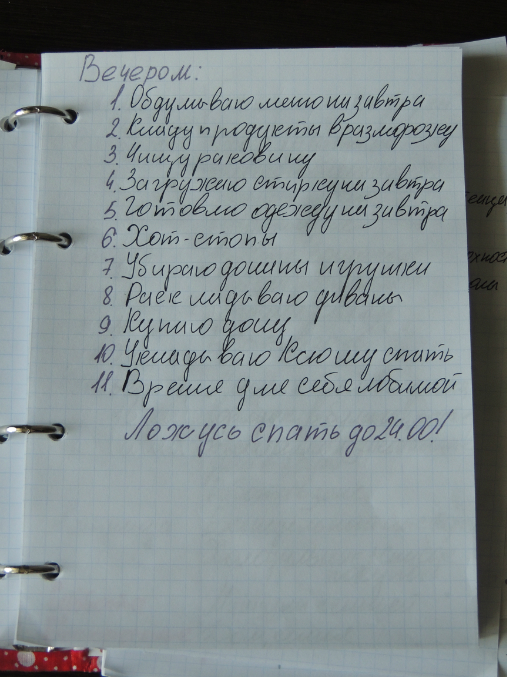 Вечером:
1. Обдумываю меню на завтра
2. Кладу продукты в разморозку
3. Чищу раковину
4. Загружаю стирку на завтра
5. Готовлю одежду на завтра
6. Хот-спопы
7. Убираю доцины игрушки
8. Раскладываю диваны
9. Купаю доцу
10. Укладываю Ксюшу спать
11. Время для себя любимой
Ложусь спать до 24.00!